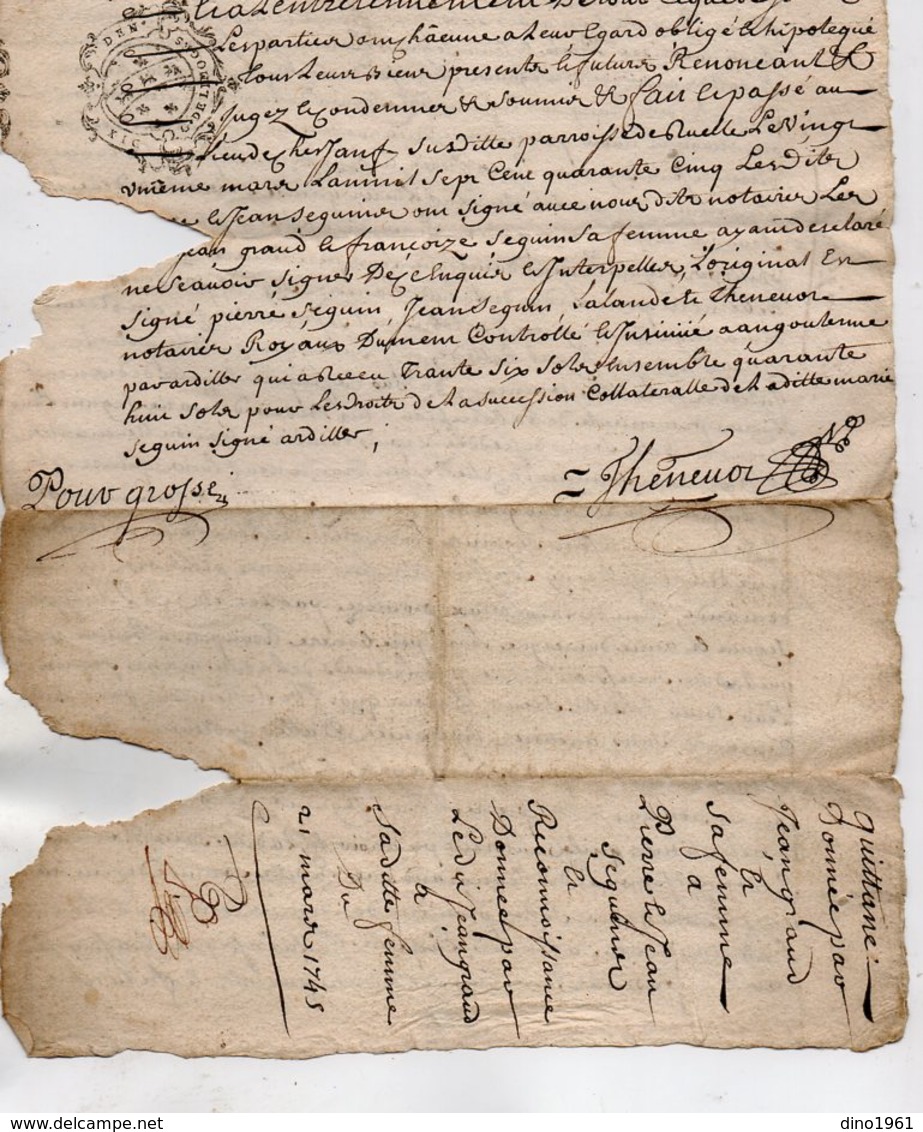 Les partier ont châcune a Leur Egard obligé & hipotequé
tous Leurs Bienr presentr & futurr Renonceant &
Jugez & Condemner & soumir & fait & passé au
Lieu de susditte parroisse de Ruelle Le Vingt
unieme marr Lan mil sept Cent quarante Cinq Lesditr
& Jean seguiner ont signé avec nous ditr notairer Les
jean graud & francoize seguin sa femme ayant desclaré
ne sçavoir signer De ce Enquir & Interpeller, L'original Est
signé pierre seguin, Jean seguin Lalande & Thenevot
notairer Royaux Dument Controllé & Insinué a angoulesme
par ardiller qui a Receu trante six solr Ensemble quarante
huit solr pour Les droitr de La succession Collateralle de Laditte marie
seguin signé ardiller ;
Pour grosse
Thenevot
DENIER
quittance
Donnée par
Jean graud
&
sa femme
a
Pierre & Jean
seguiner
&
Reconnoissance
Donnee par
Ledit Jean graud
&
saditte femme
Du
21 marr 1745
dino1961